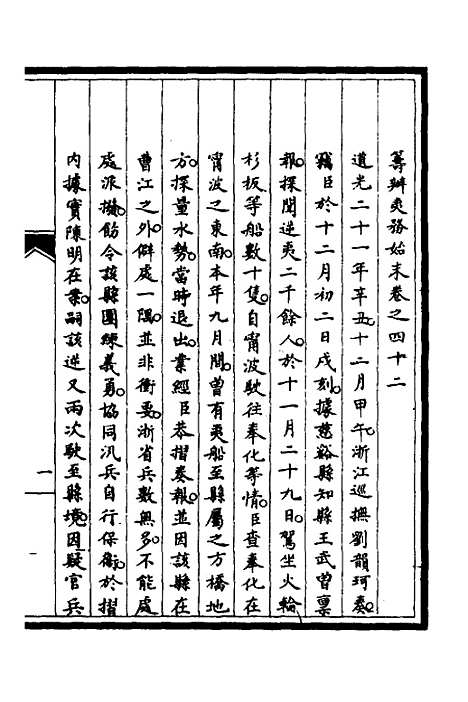 籌辦夷務始末卷之四十二
道光二十一年辛丑十二月甲午。浙江巡撫劉韻珂奏。
竊臣於十二月初二日戌刻。據慈谿縣知縣王武曾稟
報。探聞逆夷二千餘人。於十一月二十九日。駕坐火輪
杉板等船數十隻。自甯波駛往奉化等情。臣查奉化在
甯波之東南。本年九月間。曾有夷船至縣屬之方橋地
方。探量水勢。當時退出。業經臣恭摺奏報。並因該縣在
曹江之外。僻處一隅。並非衝要。浙省兵數無多。不能處
處派撥。飭令該縣團練義勇。協同汛兵自行保衛。於摺
內據實陳明在案。嗣該逆又兩次駛至縣境。因疑官兵
一